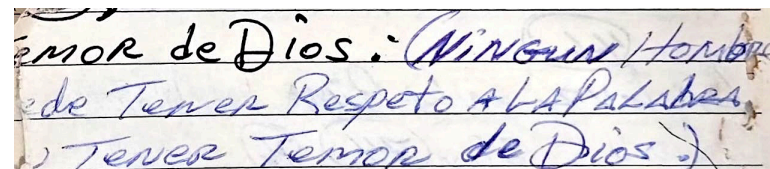 emoR de Dios: (NiNGUN HombRe
ede TeNeR Respeto A LA PALAbRA
TeNeR TemoR de Dios.)